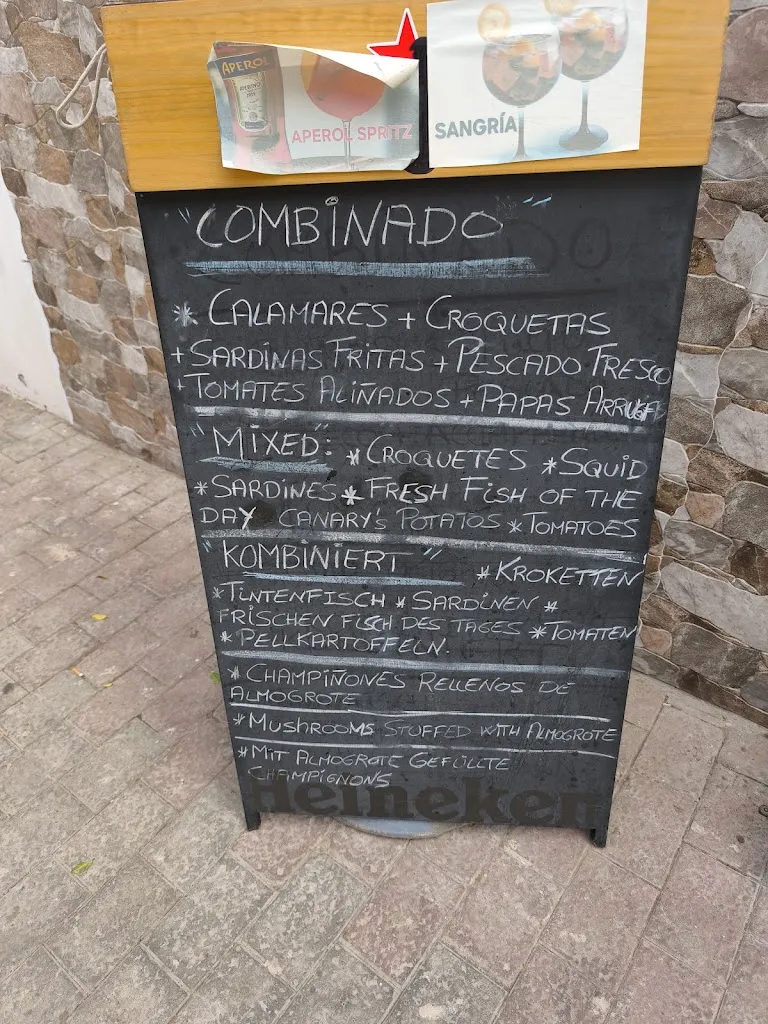 APEROL
APEROL SPRITZ
SANGRÍA
"COMBINADO"
* CALAMARES + CROQUETAS
+ SARDINAS FRITAS + PESCADO FRESCO
+ TOMATES ALIÑADOS + PAPAS ARRUGAS
"MIXED": * CROQUETES * SQUID
* SARDINES * FRESH FISH OF THE
DAY CANARY'S POTATOS * TOMATOES
"KOMBINIERT" * KROKETTEN
* TINTENFISCH * SARDINEN *
FRISCHEN FISCH DES TAGES * TOMATEN
* PELLKARTOFFELN.
* CHAMPIÑONES RELLENOS DE
ALMOGROTE
* MUSHROOMS STUFFED WITH ALMOGROTE
* MIT ALMOGROTE GEFÜLLTE
CHAMPIGNONS
Heineken